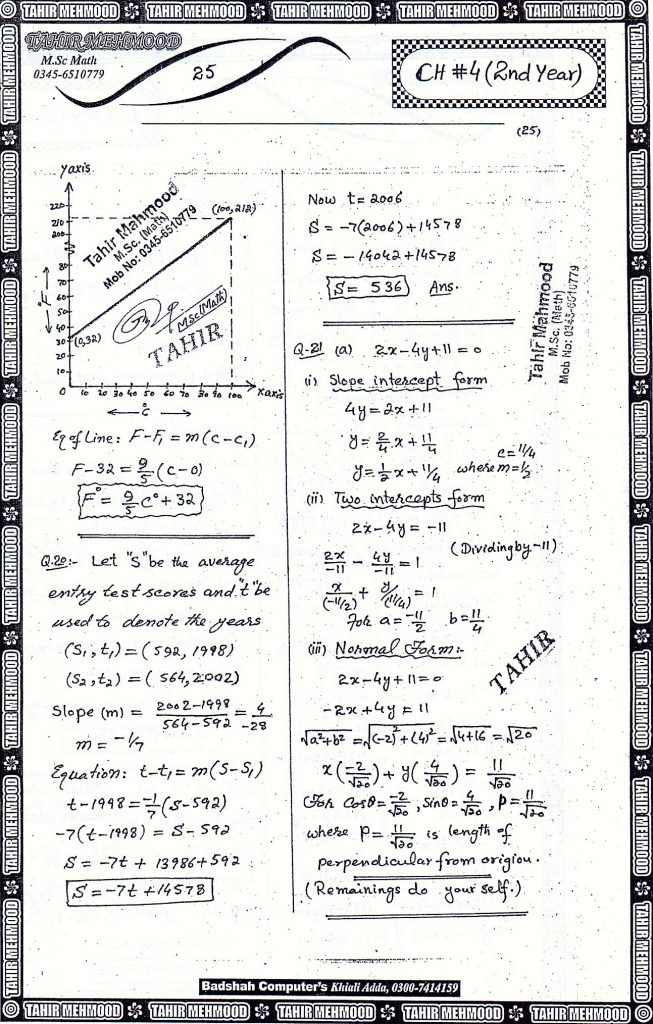 TAHIR MEHMOOD TAHIR MEHMOOD TAHIR MEHMOOD TAHIR MEHMOOD TAHIR MEHMOOD
TAHIR MEHMOOD
M.Sc Math
0345-6510779
25
CH #4 (2nd Year)
(25)
Y axis
220
210
200
80
70
60
50
40
30
20
10
0
(100, 212)
(0,32)
F
10 20 30 40 50 60 70 80 90 100 X axis
°C
Tahir Mahmood
M.Sc. (Math)
Mob No: 0345-6510779
M.Sc(Math)
TAHIR
Eq of Line: F-F₁ = m(C-C₁)
F-32 = 9/5 (C-0)
F° = 9/5 C° + 32
Q.20:- Let "S" be the average
entry test scores and "t" be
used to denote the years
(S₁, t₁) = (592, 1998)
(S₂, t₂) = (564, 2002)
Slope (m) = 2002-1998/564-592 = 4/-28
m = -1/7
Equation: t-t₁ = m(S-S₁)
t-1998 = -1/7 (S-592)
-7(t-1998) = S-592
S = -7t + 13986+592
S = -7t +14578
Now t = 2006
S = -7(2006)+14578
S = -14042+14578
S = 536 Ans.
Tahir Mahmood
M.Sc. (Math)
Mob No: 0345-6510779
Q.21 (a) 2x-4y+11 = 0
(i) Slope intercept form
4y = 2x+11
y = 2/4 x + 11/4
y = 1/2 x + 11/4 where m = 1/2 c = 11/4
(ii) Two intercepts form
2x-4y = -11
2x/-11 - 4y/-11 = 1 (Dividing by -11)
x/(-11/2) + y/(11/4) = 1
For a = -11/2 b = 11/4
(iii) Normal Form:-
TAHIR
2x-4y+11 = 0
-2x+4y = 11
√a²+b² = √(-2)²+(4)² = √4+16 = √20
x(-2/√20) + y(4/√20) = 11/√20
For Cosθ = -2/√20, Sinθ = 4/√20, P = 11/√20
where P = 11/√20 is length of
perpendicular from origiou.
(Remainings do your self.)
Badshah Computer's Khiali Adda, 0300-7414159
TAHIR MEHMOOD TAHIR MEHMOOD TAHIR MEHMOOD TAHIR MEHMOOD TAHIR MEHMOOD